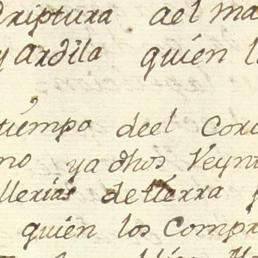 criptura del ma
y Ardila quien l
tiempo deel Cor
no ya dhos Veynt
llerias de tierra
quien los Compr